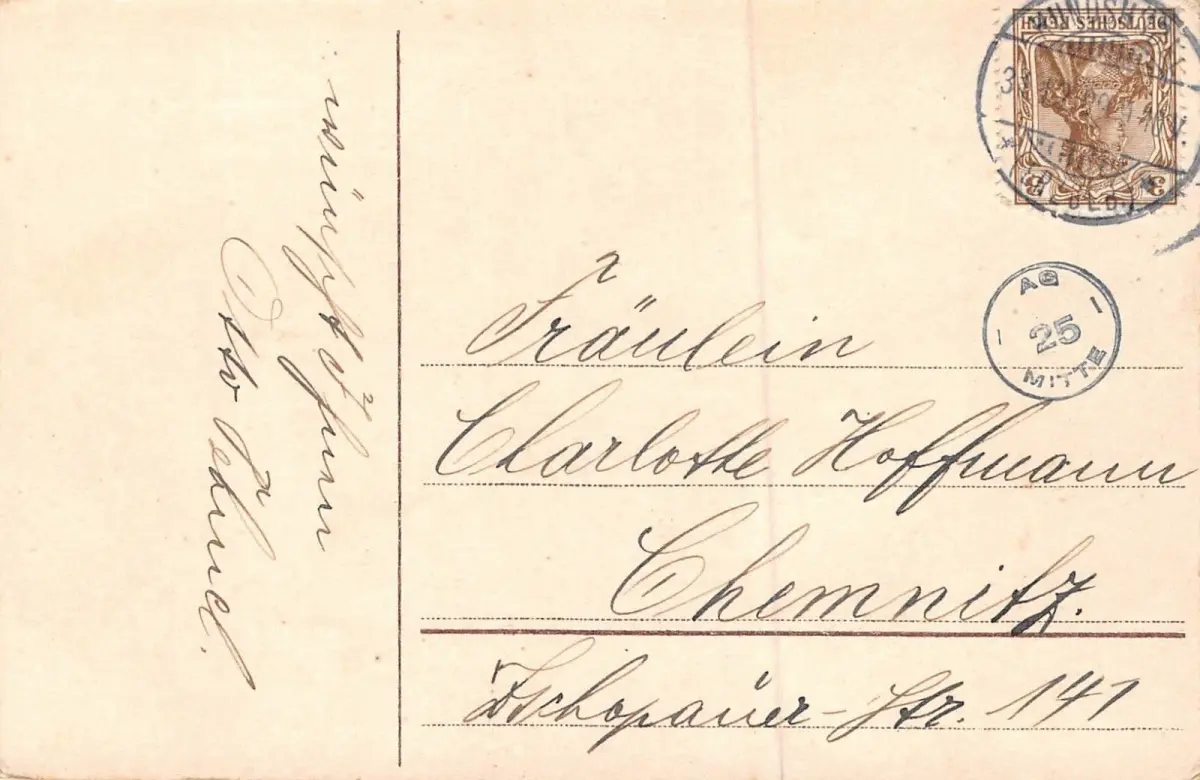 wünscht Ihnen
Otto
DEUTSCHES REICH
3 3
AG
25
MITTE
Fräulein
Charlotte Hoffmann
Chemnitz.
Zschopauer-Str. 141